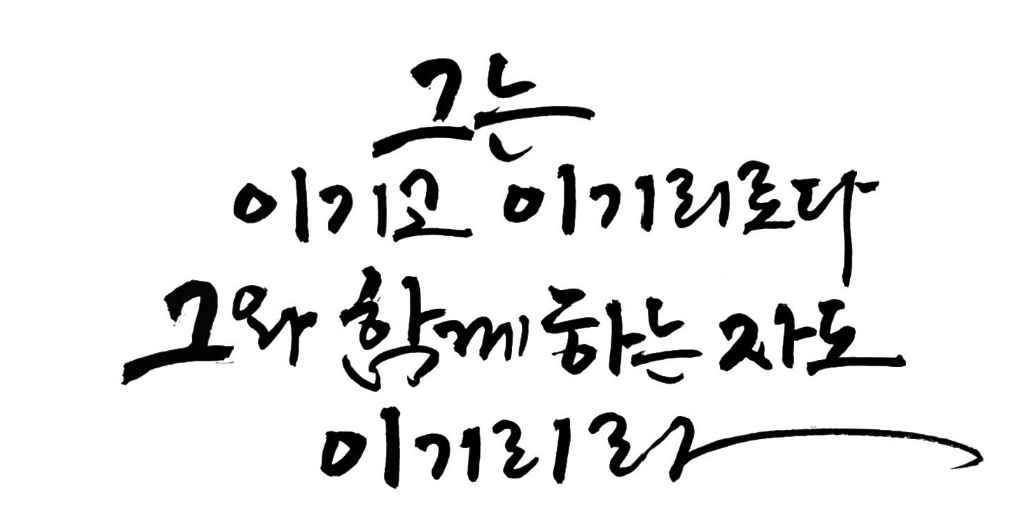 그는
이기고 이기리로다
그와 함께하는 자도
이기리라